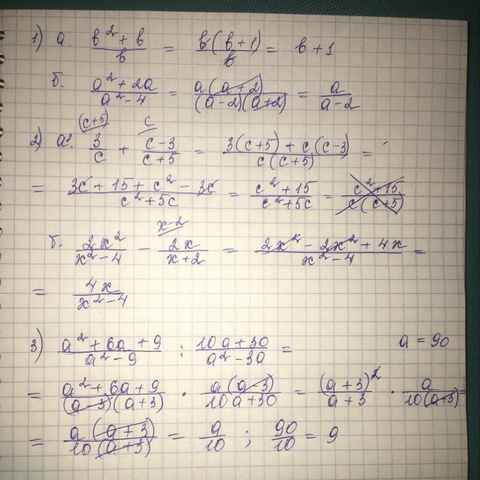 1) а. (в² + в)/в = в(в+1)/в = в + 1
б. (a² + 2a)/(a² - 4) = a(a+2)/((a-2)(a+2)) = a/(a-2)
2) а. 3/c (c+5) + (c-3)/(c+5) c = (3(c+5) + c(c-3))/(c(c+5)) =
= (3c + 15 + c² - 3c)/(c² + 5c) = (c² + 15)/(c² + 5c) = (c² + 15)/(c(c+5))
б. 2x²/(x² - 4) - 2x/(x+2) x-2 = (2x² - 2x² + 4x)/(x² - 4) =
= 4x/(x² - 4)
3) (a² + 6a + 9)/(a² - 9) : (10a + 30)/(a² - 30) = a = 90
= (a² + 6a + 9)/((a-3)(a+3)) · a(a-3)/(10a + 30) = (a+3)²/(a+3) · a/(10(a+3)) =
= a(a+3)/(10(a+3)) = a/10 ; 90/10 = 9